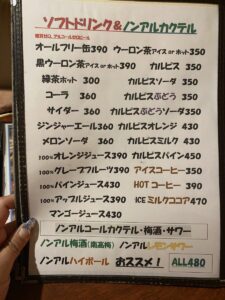 ソフトドリンク&ノンアルカクテル
オールフリー缶390 ウーロン茶アイス or ホット350
黒ウーロン茶アイス or ホット390 カルピス 350
緑茶ホット 300 カルピスソーダ 350
コーラ 360 カルピスぶどう 350
サイダー 360 カルピスぶどうソーダ350
ジンジャーエール360 カルピスオレンジ 430
メロンソーダ 360 カルピスミルク 430
100%オレンジジュース390 カルピスパイン450
100%グレープフルーツ390 アイスコーヒー350
100%パインジュース430 HOT コーヒー 390
100%アップルジュース390 ICE ミルクココア470
マンゴージュース430
ノンアルコールカクテル・梅酒・サワー
ノンアル梅酒(南高梅) ノンアルレモンサワー
ノンアルハイボール おススメ! ALL480